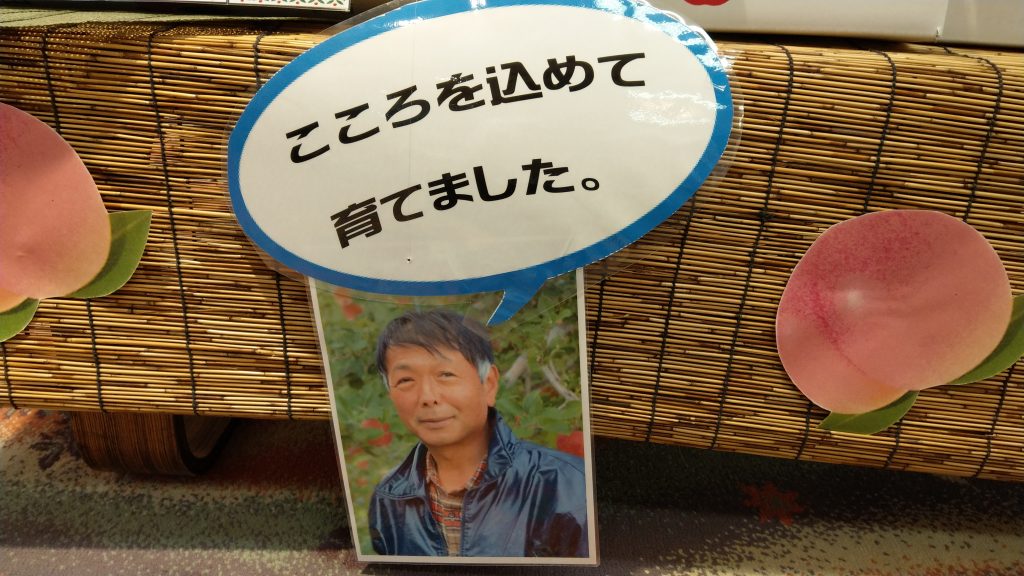 こころを込めて
育てました。